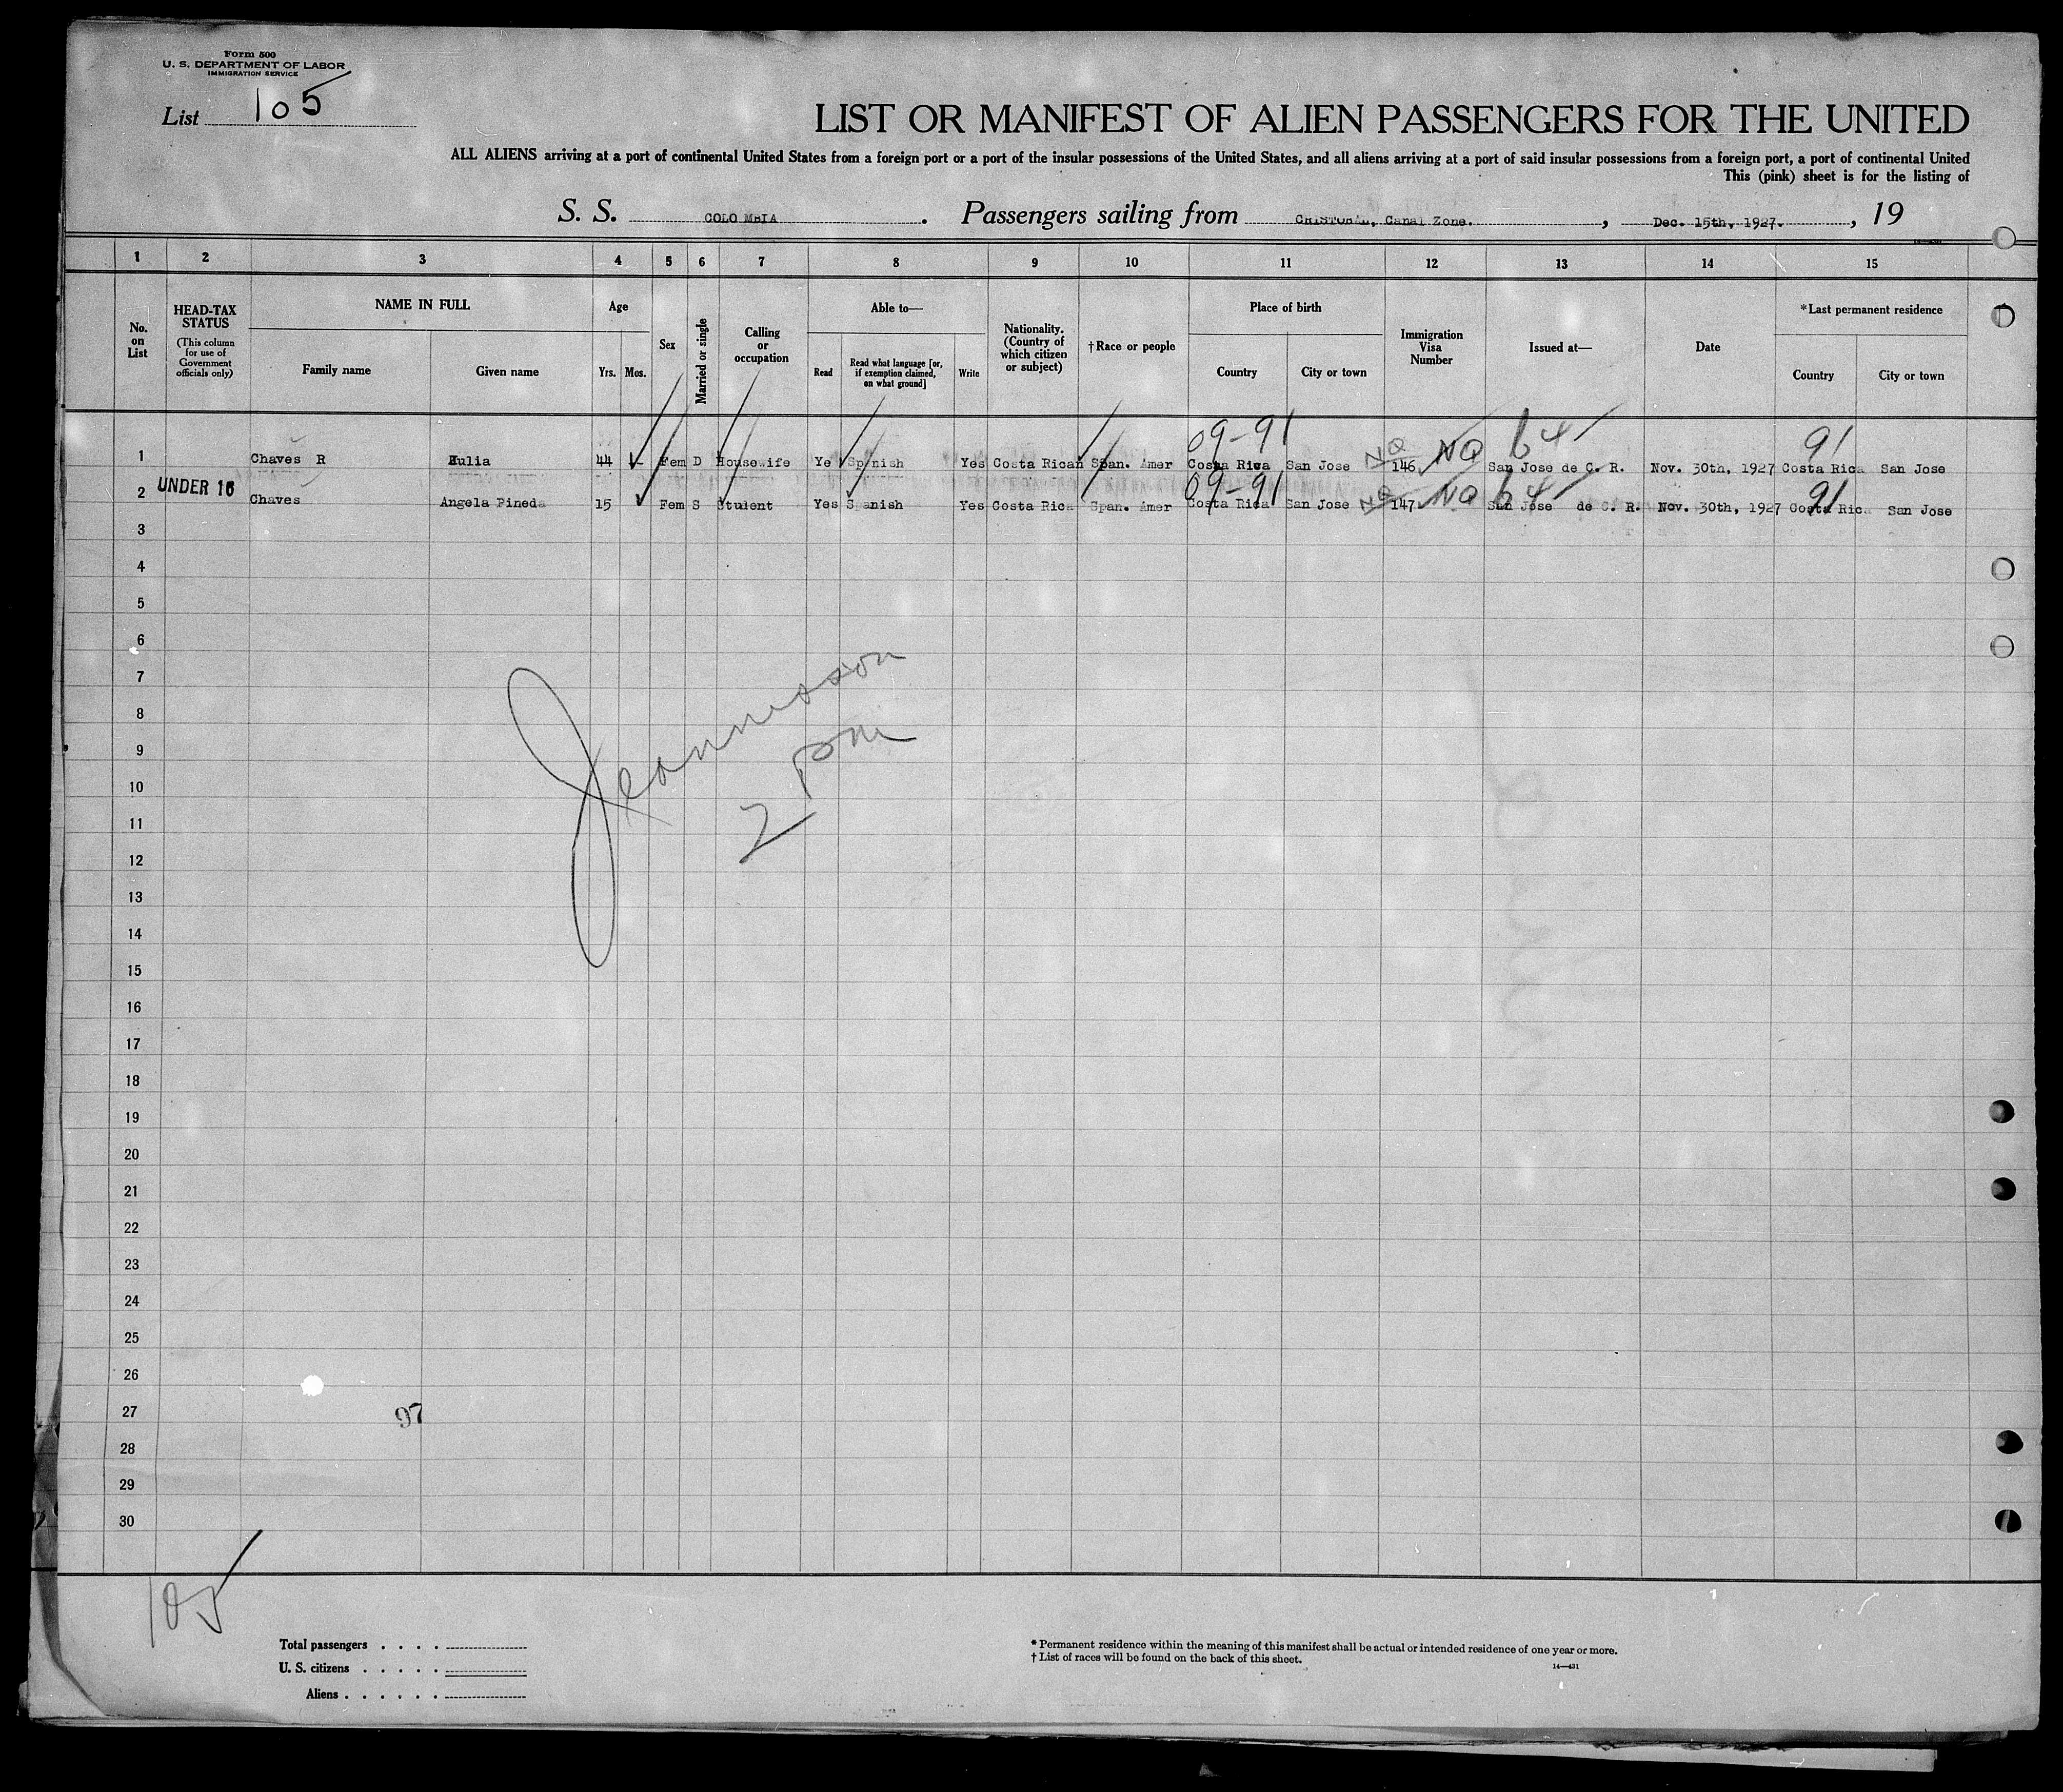 Form 500
U. S. DEPARTMENT OF LABOR
IMMIGRATION SERVICE
List 105
LIST OR MANIFEST OF ALIEN PASSENGERS FOR THE UNITED
ALL ALIENS arriving at a port of continental United States from a foreign port or a port of the insular possessions of the United States, and all aliens arriving at a port of said insular possessions from a foreign port, a port of continental United
This (pink) sheet is for the listing of
S. S. COLOMBIA. Passengers sailing from CRISTOBAL, Canal Zone., Dec. 15th, 1927., 19
1 2 3 4 5 6 7 8 9 10 11 12 13 14 15
No. on List
HEAD-TAX STATUS (This column for use of Government officials only)
NAME IN FULL
Family name Given name
Age
Yrs. Mos.
Sex
Married or single
Calling or occupation
Able to—
Read Read what language [or, if exemption claimed, on what ground] Write
Nationality. (Country of which citizen or subject)
†Race or people
Place of birth
Country City or town
Immigration Visa Number
Issued at—
Date
*Last permanent residence
Country City or town
09-91 64 91
1 Chaves R ulia 44 Fem D Housewife Ye Spanish Yes Costa Rican Span. Amer Costa Rica San Jose NQ 146 NQ San Jose de C. R. Nov. 30th, 1927 Costa Rica San Jose
UNDER 16
09-91 NQ 64 91
2 Chaves Angela Pineda 15 Fem S Student Yes Spanish Yes Costa Rica Span. Amer Costa Rica San Jose NQ 147 San Jose de C. R. Nov. 30th, 1927 Costa Rica San Jose
3
4
5
6
7
8
9
10
11
12
13
14
15
16
17
18
19
20
21
22
23
24
25
26
27
28
29
30
2 pm
97
105
Total passengers . . . .
U. S. citizens . . . . .
Aliens . . . . . .
* Permanent residence within the meaning of this manifest shall be actual or intended residence of one year or more.
† List of races will be found on the back of this sheet.
14—431